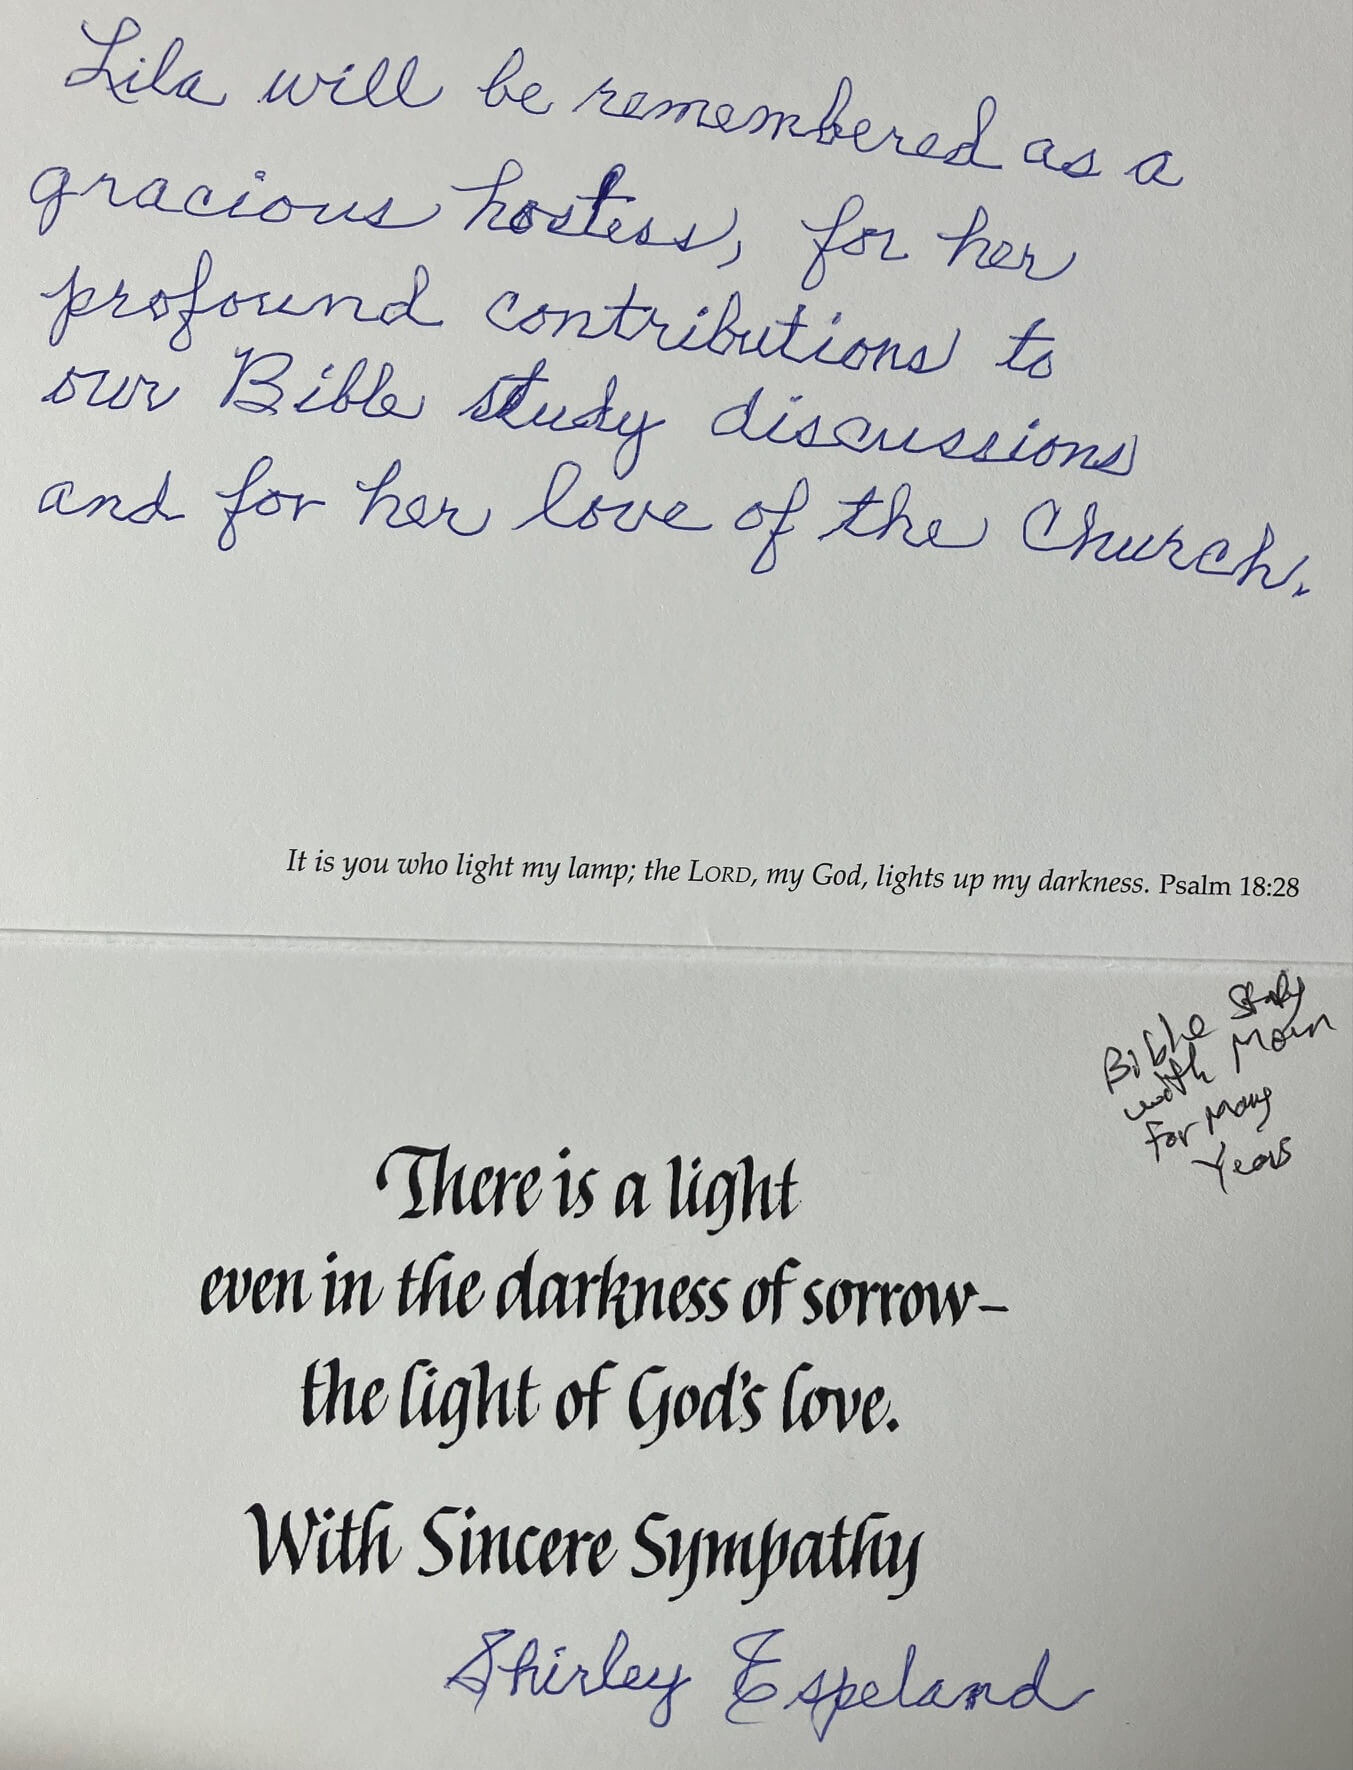 Lila will be remembered as a
gracious hostess, for her
profound contributions to
our Bible study discussions
and for her love of the Church.
It is you who light my lamp; the LORD, my God, lights up my darkness. Psalm 18:28
Bible Study
with Mom
For Many
Years
There is a light
even in the darkness of sorrow–
the light of God's love.
With Sincere Sympathy
Shirley Espeland